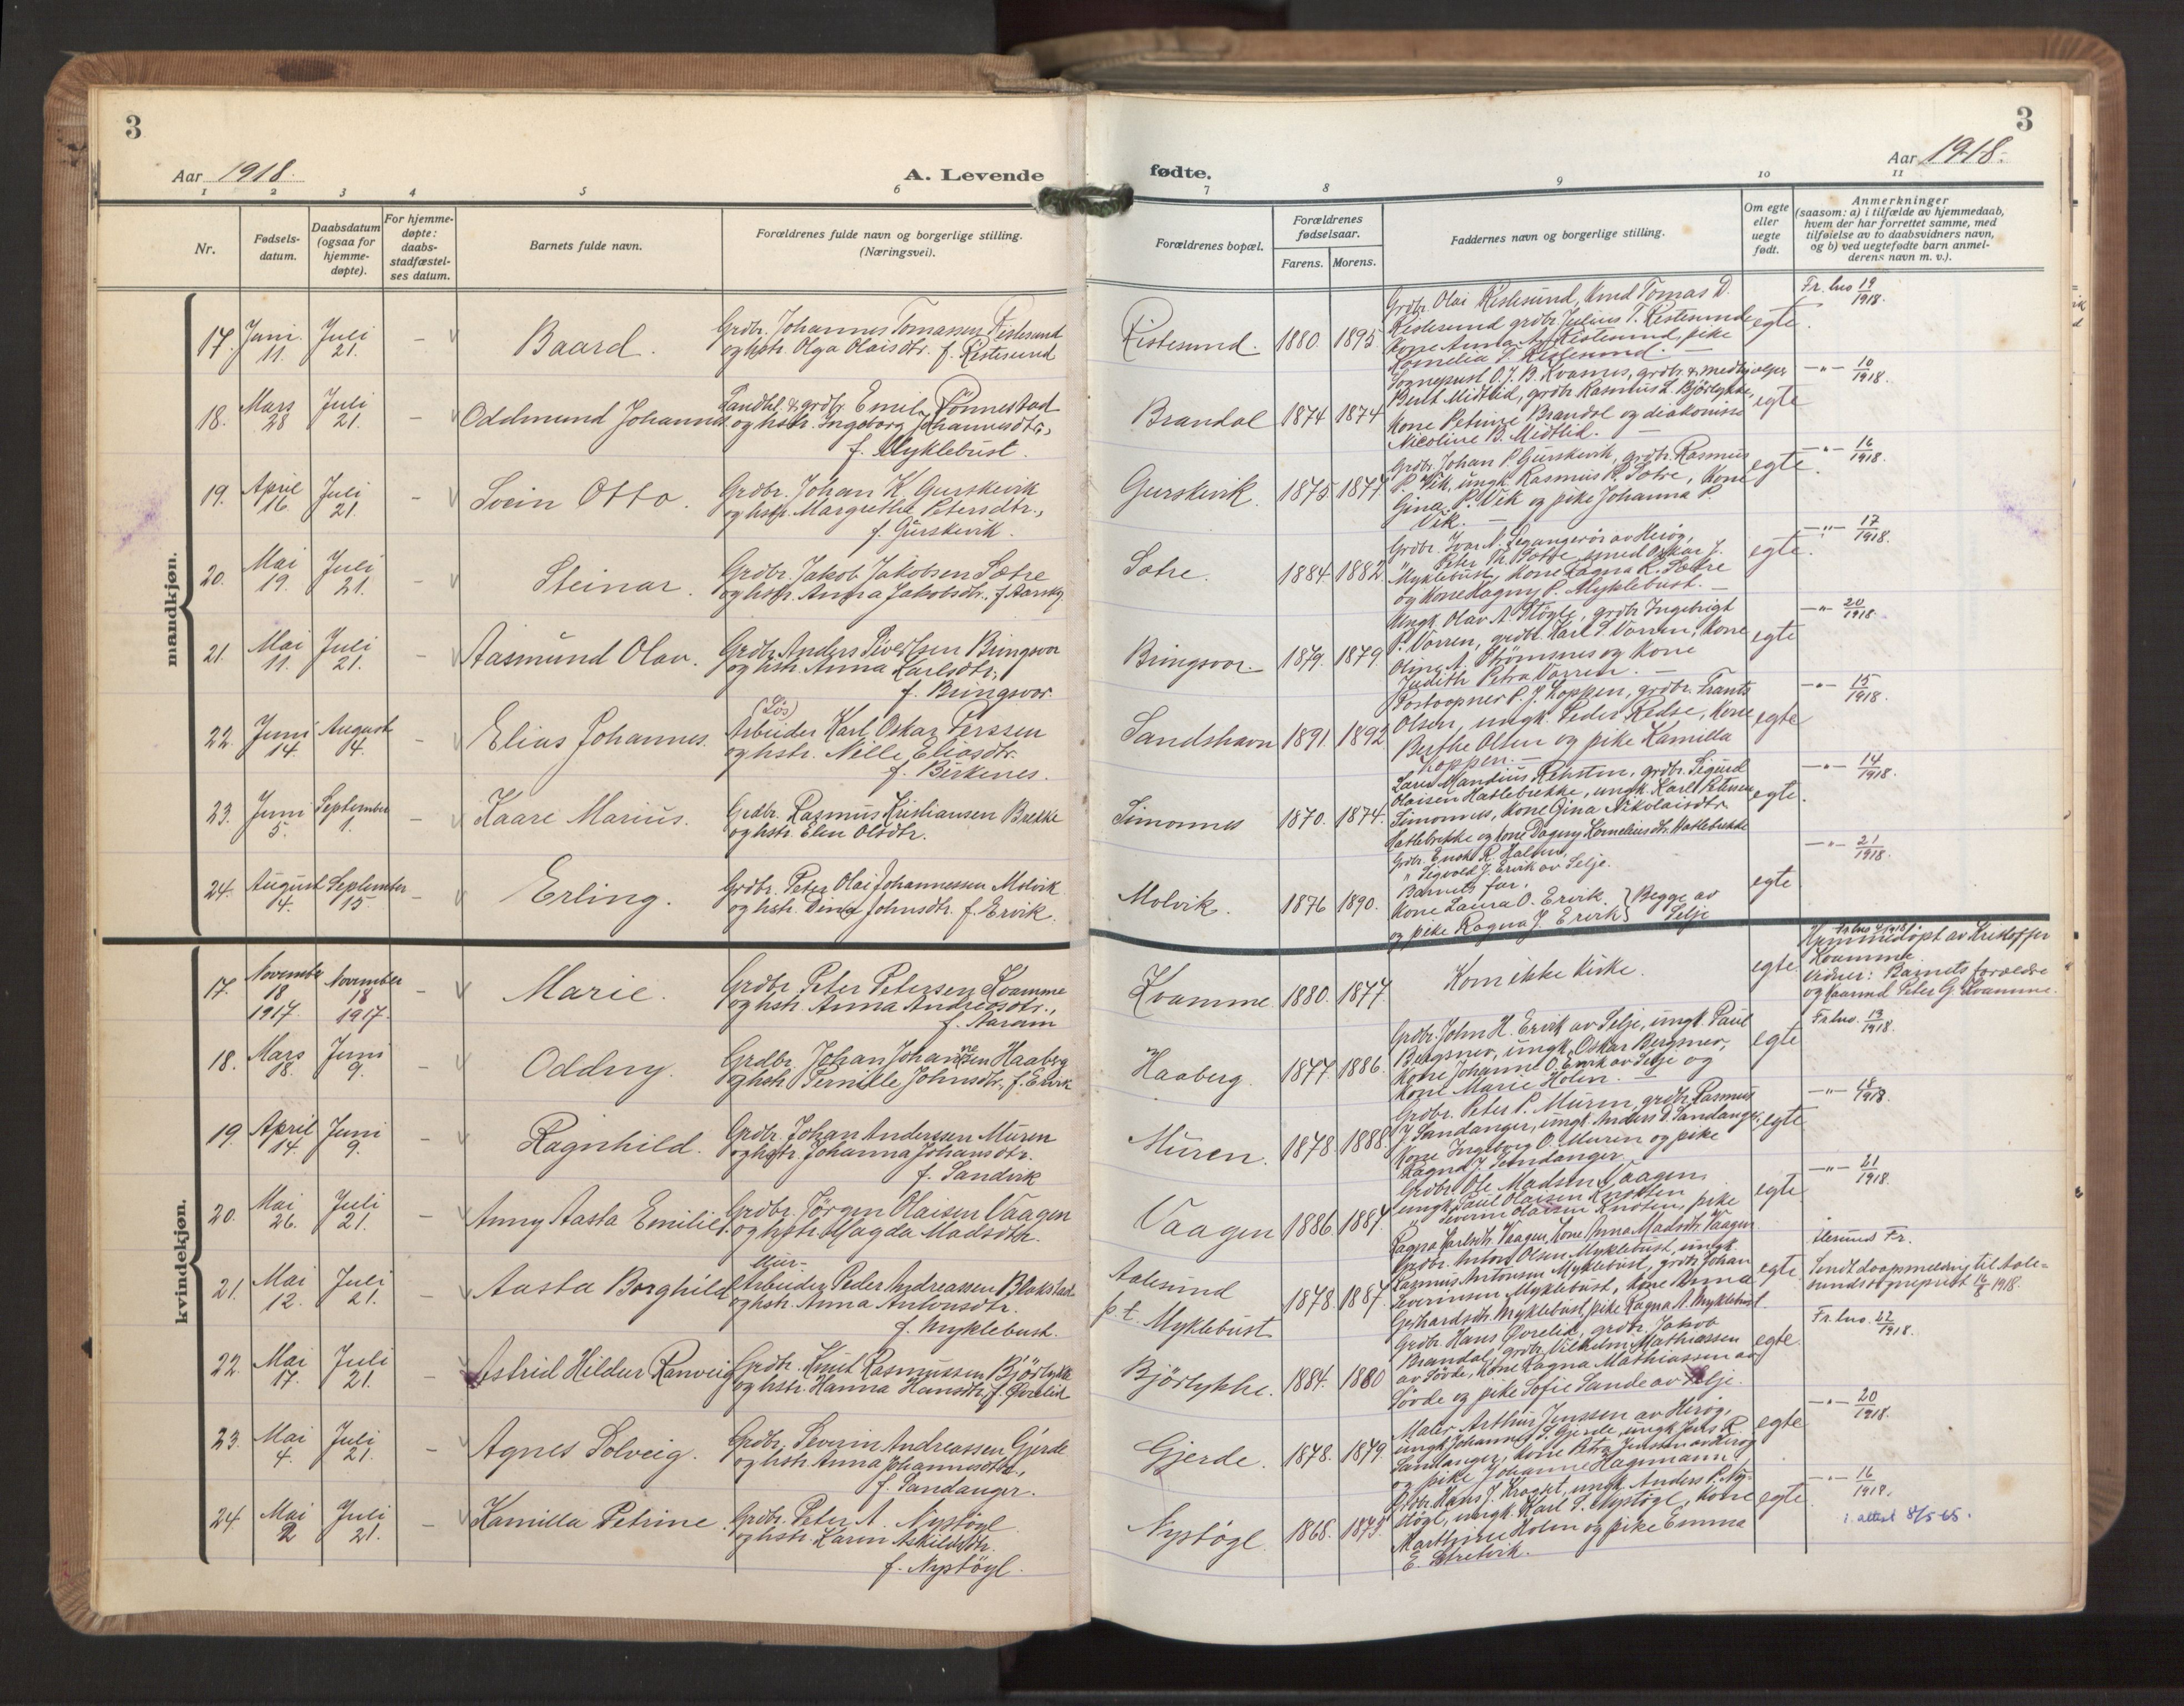 3
Aar 1918.
A. Levende
1 2 3 4 5 6
Nr.
Fødsels-
datum.
Daabsdatum
(ogsaa for
hjemme-
døpte).
For hjemme-
døpte:
daabs-
stadfæstel-
ses datum.
Barnets fulde navn.
Forældrenes fulde navn og borgerlige stilling.
(Næringsvei).
mandkjøn.
17. Juni 11. Juli 21. - Baard. Grdbr. Johannes Tomassen Ristesund
og hstr. Olga Olaisdtr. f. Ristesund
18. Mars 28 Juli 21. - Oddmund Johannes Landhl. & grdbr. Emil Rønnestad
og hstr. Ingeborg Johannesdtr.,
f. Myklebust.
19. April 16. Juli 21. - Svein Otto. Grdbr. Johan K. Gurskevik
og hstr. Margrethe Petersdtr.,
f. Gurskevik.
20. Mai 19. Juli 21. - Steinar. Grdbr. Jakob Jakobsen Sætre
og hstr. Anna Jakobsdtr.
21. Mai 11. Juli 21. - Aasmund Olav. Grdbr. Anders Sivertsen Bringsvor
og hstr. Anna Karlsdtr.,
f. Bringsvor.
22. Juni 14. August 14. - Elias Johannes. (Løs)
Arbeider Karl Oskar Perssen
og hstr. Nille Eliasdtr.
f. Birkenes.
23. Juni 5. September 1. - Kaare Marius. Grdbr. Rasmus Kristiansen Brekke
og hstr. Elen Olsdtr.
24. August 14. September 15. - Erling. Grdbr. Peter Olai Johannessen Molvik
og hstr. Dina Johnsdtr. f. Ervik.
kvindekjøn.
17. November 18 1917. November 18 1917. - Marie. Grdbr. Peter Petersen Kvamme
og hstr. Anna Andreasdtr.,
f. Aaram
18. Mars 18. Juni 9. - Oddny. Grdbr. Johan Johannesen Haaberg
og hstr. Pernille Johnsdtr., f. Ervik
19. April 14. Juni 9. - Ragnhild. Grdbr. Johan Anderssen Muren
og hstr. Johanna Johansdtr.
f. Sandvik
20. Mai 26. Juli 21. - Anny Aasta Emilie. Grdbr. Jørgen Olaisen Vaagen
og hstr. Magda Madsdtr.
21. Mai 12. Juli 21. - Aasta Borghild Mur-
Arbeider Peder Andreassen Blakstad
og hstr. Anna Antonsdtr.
f. Myklebust.
22. Mai 17. Juli 21. - Astrid Hildur Ranveig Grdbr. Knut Rasmussen Bjørlykke
og hstr. Hanna Hansdtr., f. Øvrelid
23. Mai 4. Juli 21. - Agnes Solveig. Grdbr. Severin Andreassen Gjerde
og hstr. Anna Johannesdtr.,
f. Sandanger.
24. Mai 2 Juli 21. - Kamilla Petrine. Grdbr. Peter A. Nystøgl
og hstr. Karen Askildsdtr.
f. Nystøgl.
3
Aar 1918.
fødte.
7 8 9 10 11
Forældrenes bopæl.
Forældrenes
fødselsaar.
Farens. Morens.
Faddernes navn og borgerlige stilling.
Om egte
eller
uegte
født.
Anmerkninger
(saasom: a) i tilfælde av hjemmedaab,
hvem der har forrettet samme, med
tilføielse av to daabsvidners navn,
og b) ved uegtefødte barn anmel-
derens navn m. v.).
Ristesund. 1880. 1895. egte. Fr. lno 19/1918.
Grdbr. Olai Ristesund, Knud Tomas D.
Ristesund grdbr Julius T. Ristesund
Kone Anna A. Ristesund, pike
Kornelia T. Ristesund.
Brandal 1874 1874 egte -"- 10/1918.
Sogneprest O. J. B. Kvasnes, grdbr. & medhjælper
Berth Midtlid, grdbr. Rasmus L. Bjørlykke,
Kone Petrine Brandal og diakonisse
Nicoline B. Midtlid.
Gurskevik. 1875 1877. egte. -"- 16/1918.
Grdbr. Johan P. Gurskevik, grdbr. Rasmus
P. Vik, ungk. Rasmus P. Sætre, Kone
Gina P. Vik og pike Johanna P.
Vik.
Sætre. 1884. 1882. egte. -"- 17/1918.
Grdbr. Ivar N. Leganger av Herøy,
" Peter M. Sætre, smed Oskar J.
Myklebust, Kone Ragna K. Sætre
og Kone Dagny P. Myklebust.
Bringsvor. 1879. 1879. egte -"- 20/1918.
Ungk. Olav A. Støyle, grdbr. Ingebrigt
P. Vorren, grdbr. Karl S. Vorren, Kone
Oline A. Strømsnes og Kone
Judith Petra Vorren.
Sandshavn 1891. 1892 egte -"- 15/1918.
Postaapner P. J. Koppen, grdbr. Frants
Olsen, ungk. Peder Redse, Kone
Berthe Olsen og pike Kamilla
Koppen.
Simonnes 1870. 1874. egte. -"- 14/1918.
Lars Mandius Rebsten, grdbr. Sigurd
Olaisen Hatlebrekke, ungk. Karl Petersen
Simonnes, Kone Gina Nikolaisdtr.
Hatlebrekke og kone Dagny Korneliusdtr. Hatlebrekke
Molvik. 1876 1890. egte -"- 21/1918.
Grdbr. Enok R. Halsen,
" Sigvald J. Ervik av Selje.
Barnets far.
Kone Laura O. Ervik. } Begge av
og pike Ragna J. Ervik } Selje
Kvamme 1880. 1877. Kom ikke kirke. egte.
Hjemmedøpt av Kristoffer
Kvamme.
Vidner: Barnets forældre
og Kaarmd Peter G. Kvamme.
Haaberg. 1877. 1886. egte Fr. lno. 13/1918.
Grdbr. John H. Ervik av Selje, ungk. Paul
Bergsnev, ungk. Oskar Bergsnev,
Kone Johanne O. Ervik av Selje og
Kone Marie Holen.
Muren. 1878. 1888. egte -"- 18/1918.
Grdbr. Peter P. Muren, grdbr. Rasmus
J. Sandanger, ungk. Anders D. Sandanger,
Kone Ingeborg O. Muren og pike
Ragna J. Sandanger
Vaagen 1886. 1887. egte -"- 21/1918.
Grdbr. Ole Madsen Vaagen,
ungk. Paul Olaisen Knotten
" Severin Olaisen Knotten, pike
Ragna Karlsdtr. Vaagen, Kone Anna Madsdtr. Vaagen
Aalesund
p. t. Myklebust 1878. 1887. egte.
Grdbr. Anton Olsen Myklebust, ungk.
Rasmus Antonsen Myklebust, grdbr. Johan
Severinsen Myklebust, Kone Anna
Gerhardsdtr. Myklebust, pike Ragna A. Myklebust.
Ålesund Fr.
Sendt daapsmelding til Aale-
sunds sogneprest 16/8 1918.
Bjørlykke. 1884. 1880 egte. Fr. lno. 22/1918.
Grdbr. Hans Øvrelid, grdbr. Jakob
Brandal, grdbr. Vilhelm Mathiassen
av Sørde, Kone Ragna Mathiassen av
Sørde og pike Sofie Sande av Selje.
Gjerde. 1878. 1879. egte -"- 20/1918.
Maler Arthur Jenssen av Herøy,
ungk. Johannes S. Gjerde, ungk. Jens R.
Sandanger, kone Petra Jenssen av Herøy
og pike Johanne Hagemann
Nystøgl. 1868. 1875. egte. -"- 16/1918.
Grdbr. Hans J. Kragset, ungk. Anders P. Ny-
støgl, ungk. Karl S. Nystøgl, Kone
Marthine Holm og pike Emma
E. Sætrevik.
1. attest 8/5 65.